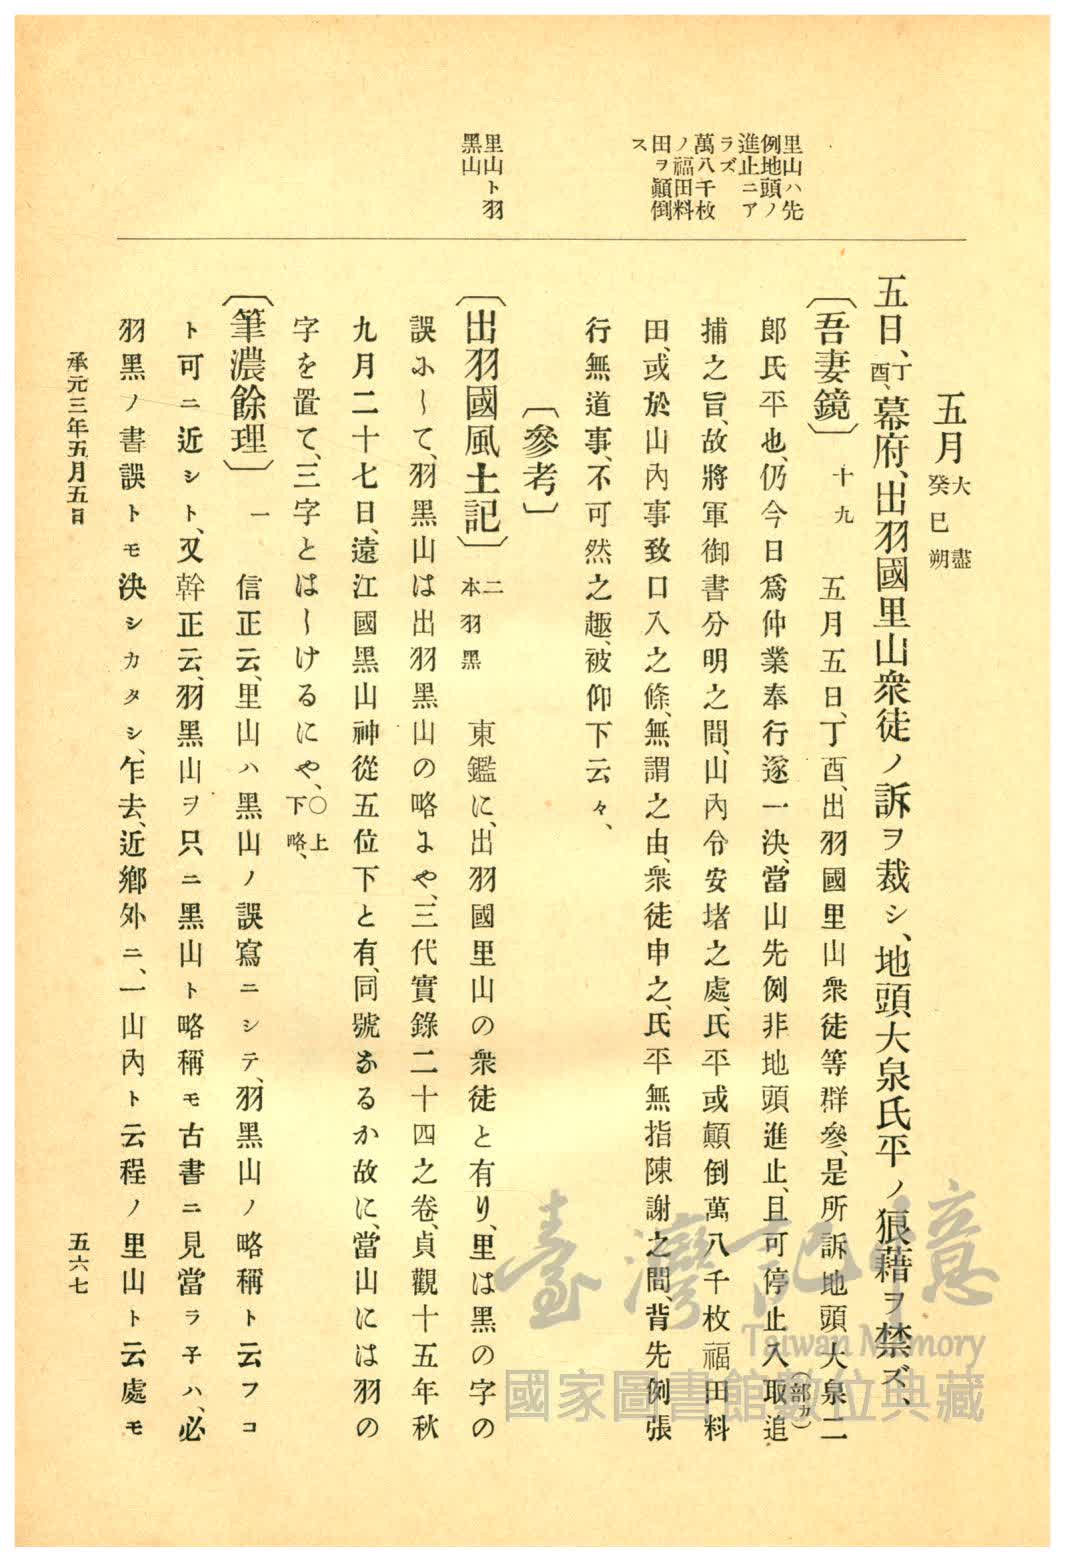 里山ハ先
例地頭ノ
進止ニア
ラズ
萬八千枚
ノ福田料
田ヲ顚倒
ス
里山ト羽
黑山
五月 大盡 癸巳朔
五日、丁酉、幕府、出羽國里山衆徒ノ訴ヲ裁シ、地頭大泉氏平ノ狼藉ヲ禁ズ、
〔吾妻鏡〕 十九 五月五日、丁酉、出羽國里山衆徒等群參、是所訴地頭大泉二
郎氏平也、仍今日爲仲業奉行遂一決、當山先例非地頭進止、且可停止入取追(部カ)
捕之旨、故將軍御書分明之間、山內令安堵之處、氏平或顚倒萬八千枚福田料
田、或於山內事致口入之條、無謂之由、衆徒申之、氏平無指陳謝之間、背先例張
行無道事、不可然之趣、被仰下云々、
〔參考〕
〔出羽國風土記〕 二 本羽黑 東鑑に、出羽國里山の衆徒と有り、里は黑の字の
誤にして、羽黑山は出羽黑山の略にや、三代實錄二十四之卷、貞觀十五年秋
九月二十七日、遠江國黑山神從五位下と有、同號なるか故に、當山には羽の
字を置て、三字とはしけるにや、〇上下略、
〔筆濃餘理〕 一 信正云、里山ハ黑山ノ誤寫ニシテ、羽黑山ノ略稱ト云フコ
ト可ニ近シト、又幹正云、羽黑山ヲ只ニ黑山ト略稱モ古書ニ見當ラ子ハ、必
羽黑ノ書誤トモ決シカタシ、乍去、近鄕外ニ、一山內ト云程ノ里山ト云處モ
承元三年五月五日
五六七
臺灣記憶
Taiwan Memory
國家圖書館數位典藏